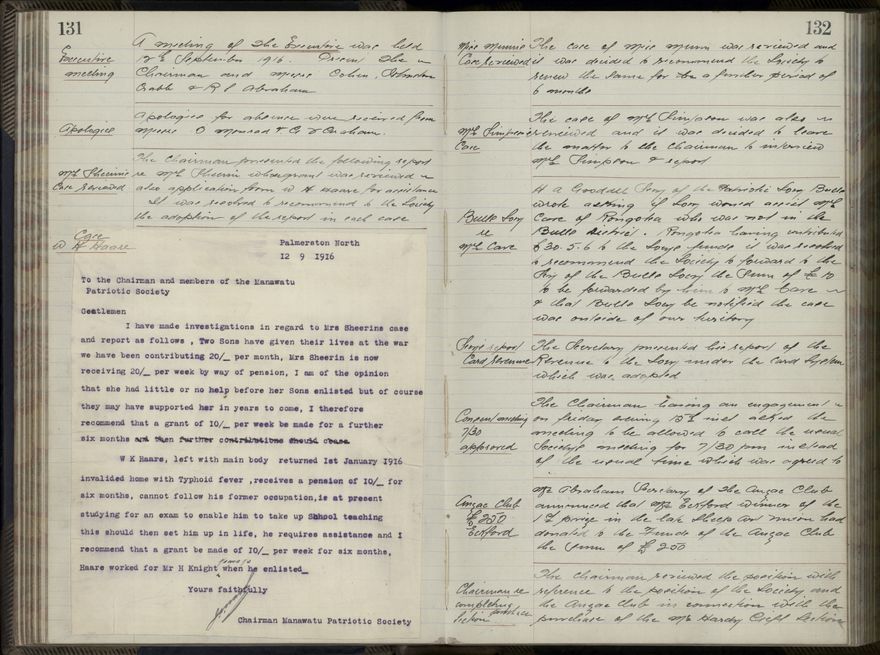 131
Executive
meeting
A meeting of the Executive was held
12th September 1916. Present The
Chairman and Messrs Cohen, Johnston
Crabb & R S Abraham
Apologies
Apologies for absence were received from
Messrs O Monrad & Graham.
Mrs Sheerin
Case reviewed
The Chairman presented the following report
re Mrs Sheerin whose grant was reviewed
also application from W K Haare for assistance
It was resolved to recommend to the Society
the adoption of the report in each case
Case
W K Haare
Palmerston North
12 9 1916
To the Chairman and members of the Manawatu
Patriotic Society
Gentlemen
I have made investigations in regard to Mrs Sheerins case
and report as follows , Two Sons have given their lives at the war
we have been contributing 20/_ per month, Mrs Sheerin is now
receiving 20/_ per week by way of pension, I am of the opinion
that she had little or no help before her Sons enlisted but of course
they may have supported her in years to come, I therefore
recommend that a grant of 10/_ per week be made for a further
six months and then further contributions should cease.
W K Haare, left with main body returned 1st January 1916
invalided home with Typhoid fever ,receives a pension of 10/_ for
six months, cannot follow his former occupation,is at present
studying for an exam to enable him to take up Shhool teaching
this should then set him up in life, he requires assistance and I
recommend that a grant be made of 10/_ per week for six months,
Haare worked for Mr H Knight when he enlisted_
Yours faithfully
Chairman Manawatu Patriotic Society
132
Miss Munn
Case reviewed
The case of Miss Munn was reviewed and
it was decided to recommend the Society to
renew the same for a further period of
6 months
Mrs Simpson
Case
The case of Mrs Simpson was also
reviewed and it was decided to leave
the matter to the Chairman to interview
Mrs Simpson & report
Bulls Socy
re
Mrs Care
H A Goodall Secy of the Patriotic Socy Bulls
wrote asking if Socy would assist Mrs
Care of Rongotea who was not in the
Bulls District. Rongotea having contributed
£30.5.6 to the Socys funds it was resolved
to recommend the Society to forward to the
Secy of the Bulls Socy the sum of £10
to be forwarded by him to Mrs Care
& that Bulls Socy be notified the case
was outside of our territory
Secys report
Card revenue
The Secretary presented his report of the
Revenue to the Socy under the Card System
which was adopted
meeting
7/30
approved
The Chairman having an engagement
on Friday evening 15th inst asked the
meeting to be allowed to call the usual
Societys meeting for 7/30 pm instead
of the usual time which was agreed to
Anzac Club
£200
Eckford
Mr Abraham Secretary of the Anzac Club
announced that Mr Eckford winner of the
1st prize in the late Sheep Art Union had
donated to the Funds of the Anzac Club
the sum of £200
Chairman re
completing purchase
Section
The Chairman reviewed the position with
reference to the position of the Society and
the Anzac Club in connection with the
purchase of the Mr Hardy Croft Section